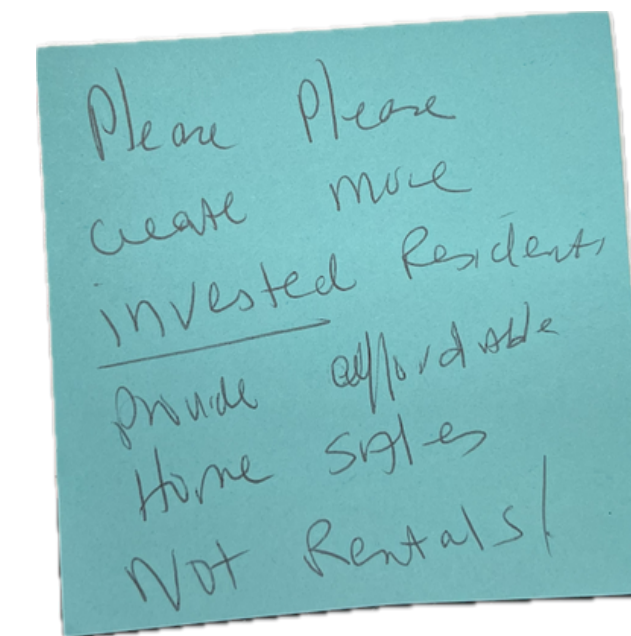 Please Please
create more
invested Residents
provide affordable
Home SAles
Not Rentals!